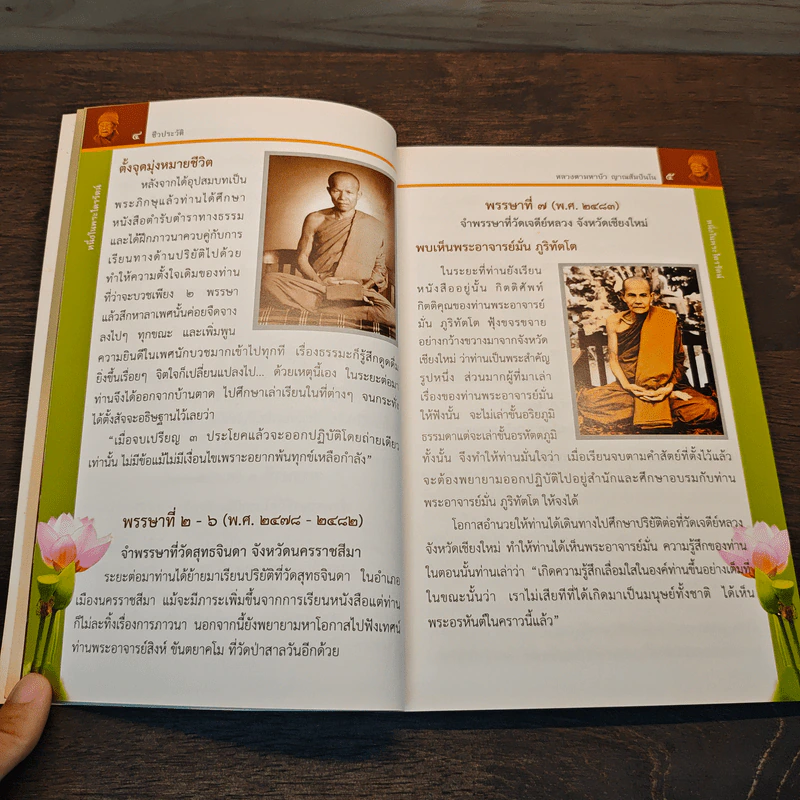 ๔ ชีวประวัติ
หนึ่งในพระไตรรัตน์
ตั้งจุดมุ่งหมายชีวิต
หลังจากได้อุปสมบทเป็น
พระภิกษุแล้วท่านได้ศึกษา
หนังสือตำรับตำราทางธรรม
และได้ฝึกภาวนาควบคู่กับการ
เรียนทางด้านปริยัติไปด้วย
ทำให้ความตั้งใจเดิมของท่าน
ที่ว่าจะบวชเพียง ๒ พรรษา
แล้วสึกหาลาเพศนั้นค่อยจืดจาง
ลงไปๆ ทุกขณะ และเพิ่มพูน
ความยินดีในเพศนักบวชมากเข้าไปทุกที เรื่องธรรมะก็รู้สึกดูดดื่ม
ยิ่งขึ้นเรื่อยๆ จิตใจก็เปลี่ยนแปลงไป... ด้วยเหตุนี้เอง ในระยะต่อมา
ท่านจึงได้ออกจากบ้านตาด ไปศึกษาเล่าเรียนในที่ต่างๆ จนกระทั่ง
ได้ตั้งสัจจะอธิษฐานไว้เลยว่า
“เมื่อจบเปรียญ ๓ ประโยคแล้วจะออกปฏิบัติโดยถ่ายเดียว
เท่านั้น ไม่มีข้อแม้ไม่มีเงื่อนไขเพราะอยากพ้นทุกข์เหลือกำลัง”
พรรษาที่ ๒ - ๖ (พ.ศ. ๒๔๗๘ - ๒๔๘๒)
จำพรรษาที่วัดสุทธจินดา จังหวัดนครราชสีมา
ระยะต่อมาท่านได้ย้ายมาเรียนปริยัติที่วัดสุทธจินดา ในอำเภอ
เมืองนครราชสีมา แม้จะมีภาระเพิ่มขึ้นจากการเรียนหนังสือแต่ท่าน
ก็ไม่ละทิ้งเรื่องการภาวนา นอกจากนี้ยังพยายามหาโอกาสไปฟังเทศน์
ท่านพระอาจารย์สิงห์ ขันตยาคโม ที่วัดป่าสาลวันอีกด้วย
หลวงตามหาบัว ญาณสัมปันโน ๕
หนึ่งในพระไตรรัตน์
พรรษาที่ ๗ (พ.ศ. ๒๔๘๓)
จำพรรษาที่วัดเจดีย์หลวง จังหวัดเชียงใหม่
พบเห็นพระอาจารย์มั่น ภูริทัตโต
ในระยะที่ท่านยังเรียน
หนังสืออยู่นั้น กิตติศัพท์
กิตติคุณของท่านพระอาจารย์
มั่น ภูริทัตโต ฟุ้งขจรขจาย
อย่างกว้างขวางมาจากจังหวัด
เชียงใหม่ ว่าท่านเป็นพระสำคัญ
รูปหนึ่ง ส่วนมากผู้ที่มาเล่า
เรื่องของท่านพระอาจารย์มั่น
ให้ฟังนั้น จะไม่เล่าขั้นอริยภูมิ
ธรรมดาแต่จะเล่าขั้นอรหัตตภูมิ
ทั้งนั้น จึงทำให้ท่านมั่นใจว่า เมื่อเรียนจบตามคำสัตย์ที่ตั้งไว้แล้ว
จะต้องพยายามออกปฏิบัติไปอยู่สำนักและศึกษาอบรมกับท่าน
พระอาจารย์มั่น ภูริทัตโต ให้จงได้
โอกาสอำนวยให้ท่านได้เดินทางไปศึกษาปริยัติต่อที่วัดเจดีย์หลวง
จังหวัดเชียงใหม่ ทำให้ท่านได้เห็นพระอาจารย์มั่น ความรู้สึกของท่าน
ในตอนนั้นท่านเล่าว่า “เกิดความรู้สึกเลื่อมใสในองค์ท่านขึ้นอย่างเต็มที่
ในขณะนั้นว่า เราไม่เสียทีที่ได้เกิดมาเป็นมนุษย์ทั้งชาติ ได้เห็น
พระอรหันต์ในคราวนี้แล้ว”